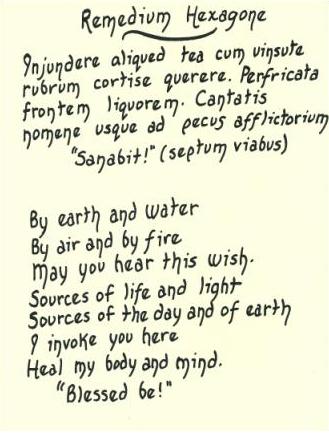 Remedium Hexagone
Injundere aliqued tea cum vinsute
rubrum cortise querere. Perfricata
frontem liquorem. Cantatis
nomene usque ad pecus afflictorium
"Sanabit!" (septum viabus)
By earth and water
By air and by fire
May you hear this wish.
Sources of life and light
Sources of the day and of earth
I invoke you here
Heal my body and mind.
"Blessed be!"